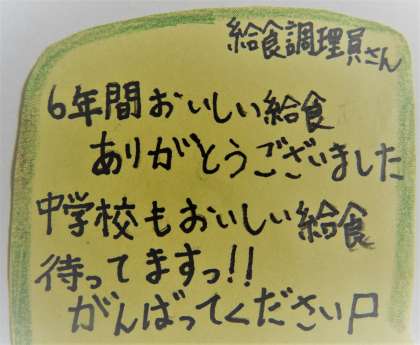 給食調理員さん
6年間おいしい給食
ありがとうございました
中学校もおいしい給食
待ってますっ!!
がんばってください